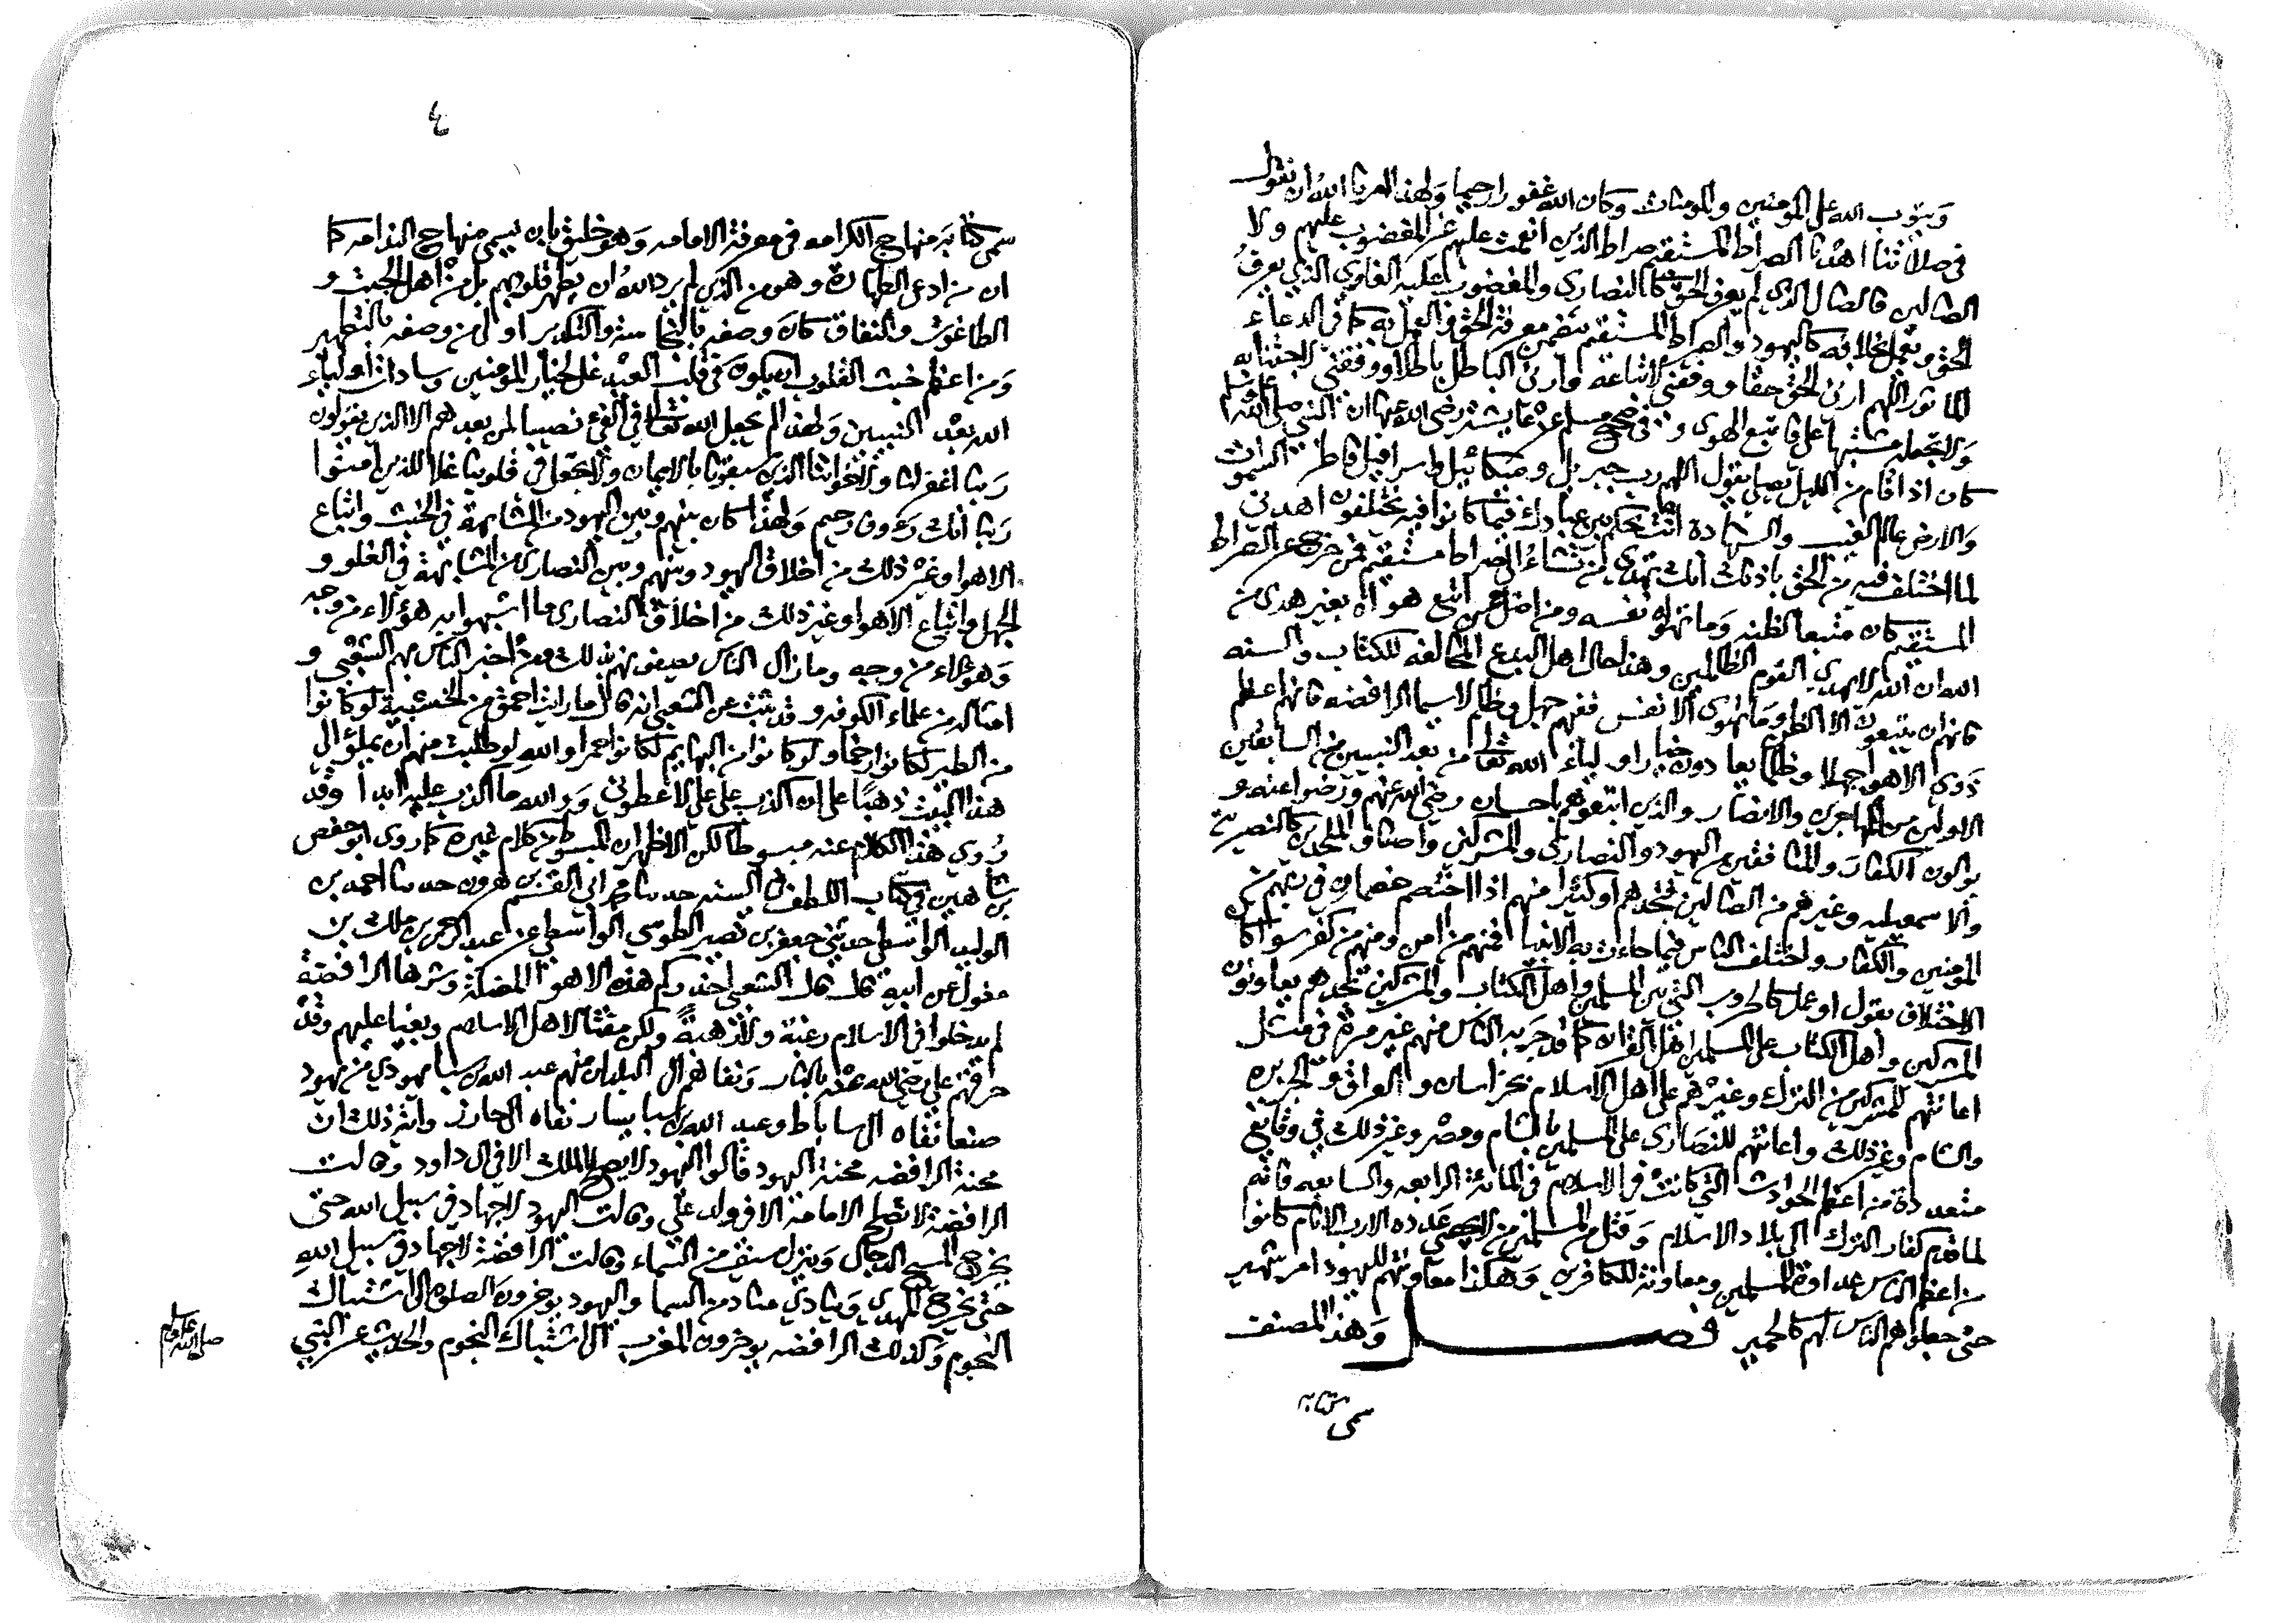 ويتوب الله على المومنين والمومنات وكان الله غفورا رحيما ولهذا امرنا الله ان نقول
في صلاتنا اهدنا الصراط المستقيم صراط الذين انعمت عليهم غير المغضوب عليهم ولا
الضالين فالضال الذي لم يعرف الحق كالنصارى والمغضوب عليه الغاوي الذي يعرف
الحق ويعمل بخلافه كاليهود والصراط المستقيم يتضمن معرفة الحق والعمل به كما في الدعاء
الماثور اللهم ارني الحق حقا ووفقني لاتباعه وارني الباطل باطلا ووفقني لاجتنابه
ولا تجعله مشتبها علي فاتبع الهوى وفي صحيح مسلم عن عايشة رضي الله عنها ان النبي صلى الله عليه وسلم
كان اذا قام من الليل يصلي يقول اللهم رب جبريل وميكائيل واسرافيل فاطر السموات
والارض عالم الغيب والشهادة انت تحكم بين عبادك فيما كانوا فيه يختلفون اهدني
لما اختلف فيه من الحق باذنك انك تهدي من تشاء الى صراط مستقيم فمن خرج عن الصراط
المستقيم كان متبعا لظنه وما تهواه نفسه ومن اضل ممن اتبع هواه بغير هدى من
الله ان الله لا يهدي القوم الظالمين وهذا حال اهل البدع المخالفة للكتاب والسنه
فانهم ان يتبعون الا الظن وما تهوى الانفس ففيهم جهل وظلم لاسيما الرافضه فانهم اعظم
ذوي الاهوا جهلا وظلما يعادون خيار اولياء الله تعالى من بعد النبيين من السابقين
الاولين من المهاجرين والانصار والذين اتبعوهم باحسان رضي الله عنهم ورضوا عنه و
يوالون الكفار والمنافقين من اليهود والنصارى والمشركين واصناف الملحدين كالنصيرية
والاسمعيليه وغيرهم من الضالين فتجدهم او كثيرا منهم اذا اختصم خصمان في ربهم من
المومنين والكفار واختلف الناس فيما جاءت به الانبيا فمنهم من امن ومنهم من كفر سوا كان
الاختلاف بقول او عمل كالحروب التي بين المسلمين واهل الكتاب والمشركين تجدهم يعاونون
المشركين واهل الكتاب على المسلمين اهل القران كما قد جربه الناس منهم غير مرة في مثل
اعانتهم للمشركين من الترك وغيرهم على اهل الاسلام بخراسان والعراق والجزيره
والشام وغير ذلك واعانتهم للنصارى على المسلمين بالشام ومصر وغير ذلك في وقايع
متعددة من اعظم الحوادث التي كانت في الاسلام في المائة الرابعه والسابعه فانه
لما قدم كفار الترك الى بلاد الاسلام وقتل من المسلمين من لا يحصي عدده الا رب الانام كانوا
من اعظم الناس عداوة للمسلمين ومعاونة للكافرين وهكذا معاونتهم لليهود امر شهير
حتى جعلوهم الناس لهم كالحمير فصل وهذا المصنف
سمى كتابه
٤
سمى كتابه منهاج الكرامه في معرفة الامامه وهو خليق بان يسمى منهاج الندامه كما
ان من ادعى الطهارة وهو من الذين لم يرد الله ان يطهر قلوبهم بل من اهل الجبت و
الطاغوت والنفاق كان وصفه بالنجاسة والتكدير اولى من وصفه بالتطهير
ومن اعظم خبث القلوب ان يكون في قلب العبد غل لخيار المومنين وسادات اولياء
الله بعد النبيين ولهذا لم يجعل الله تعالى في الفيء نصيبا لمن بعدهم الا الذين يقولون
ربنا اغفر لنا ولاخواننا الذين سبقونا بالايمان ولا تجعل في قلوبنا غلا للذين امنوا
ربنا انك رءوف رحيم ولهذا كان بينهم وبين اليهود من المشابهة في الخبث واتباع
الاهوا وغير ذلك من اخلاق اليهود وبينهم وبين النصارى من المشابهة في الغلو و
الجهل واتباع الاهوا وغير ذلك من اخلاق النصارى ما اشبهوا به هؤلاء من وجه
وهؤلاء من وجه وما زال الناس يصفونهم بذلك ومن اخبر الناس بهم الشعبي و
امثاله من علماء الكوفه وقد ثبت عن الشعبي انه قال ما رايت احمق من الخشبية لو كانوا
من الطير لكانوا رخما ولو كانوا من البهايم لكانوا حمرا والله لو طلبت منهم ان يملؤا لي
هذا البيت ذهبا على ان اكذب على علي لاعطوني ووالله ما اكذب عليه ابدا وقد
روي هذا الكلام عنه مبسوطا لكن الاظهر ان المبسوط من كلام غيره كما روى ابو حفص
بن شاهين في كتاب اللطف في السنه حدثنا محمد بن ابي القسم بن هرون حدثنا احمد بن
الوليد الواسطي حدثني جعفر بن نصير الطوسي الواسطي عن عبد الرحمن بن ملك بن
مغول عن ابيه قال قال الشعبي احذركم هذه الاهوا المضلة وشرها الرافضة
لم يدخلوا في الاسلام رغبة ولا رهبة ولكن مقتا لاهل الاسلام وبغيا عليهم وقد
حرقهم علي رضي الله عنه بالنار ونفاهم الى البلدان منهم عبد الله بن سبا يهودي من يهود
صنعا نفاه الى ساباط وعبد الله بن يسار نفاه الى خازر واية ذلك ان
محنة الرافضه محنة اليهود قالوا اليهود لا يصلح الملك الا في ال داود وقالت
الرافضة لا تصلح الامامة الا في ولد علي وقالت اليهود لا جهاد في سبيل الله حتى
يخرج المسيح الدجال وينزل سيف من السماء وقالت الرافضة لا جهاد في سبيل الله
حتى يخرج المهدي وينادي مناد من السما واليهود يوخرون الصلوة الى اشتباك
النجوم وكذلك الرافضه يوخرون المغرب الى اشتباك النجوم والحديث عن النبي
صلى الله عليه وسلم